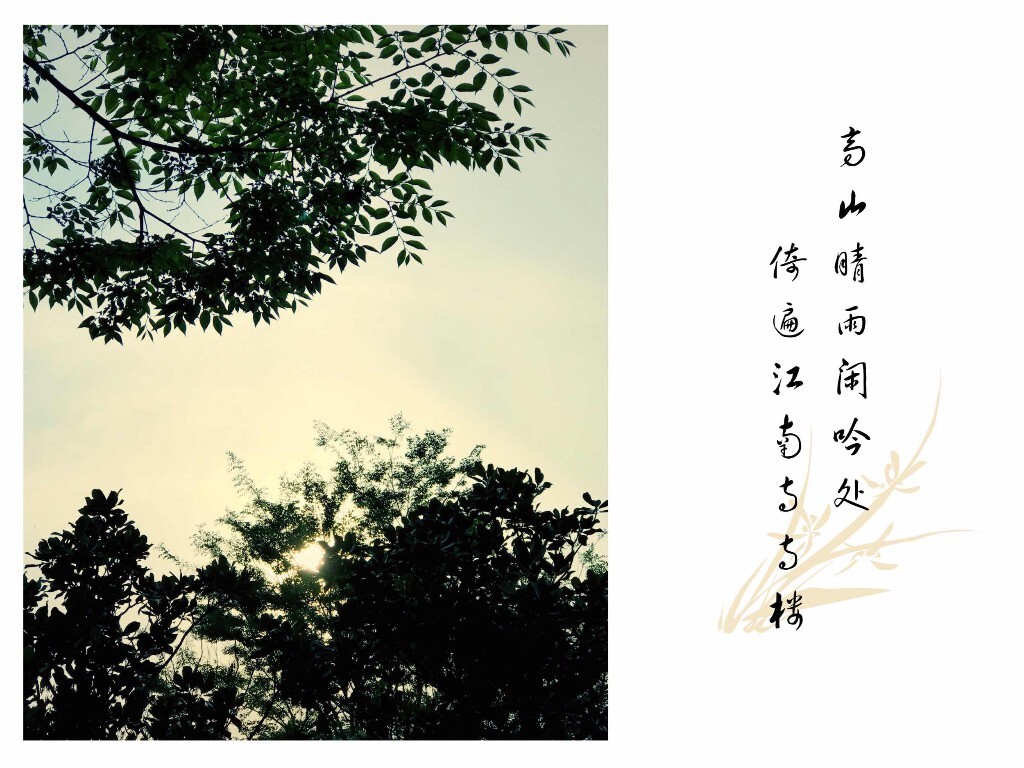 高山晴雨闲吟处
倚遍江南寺寺楼